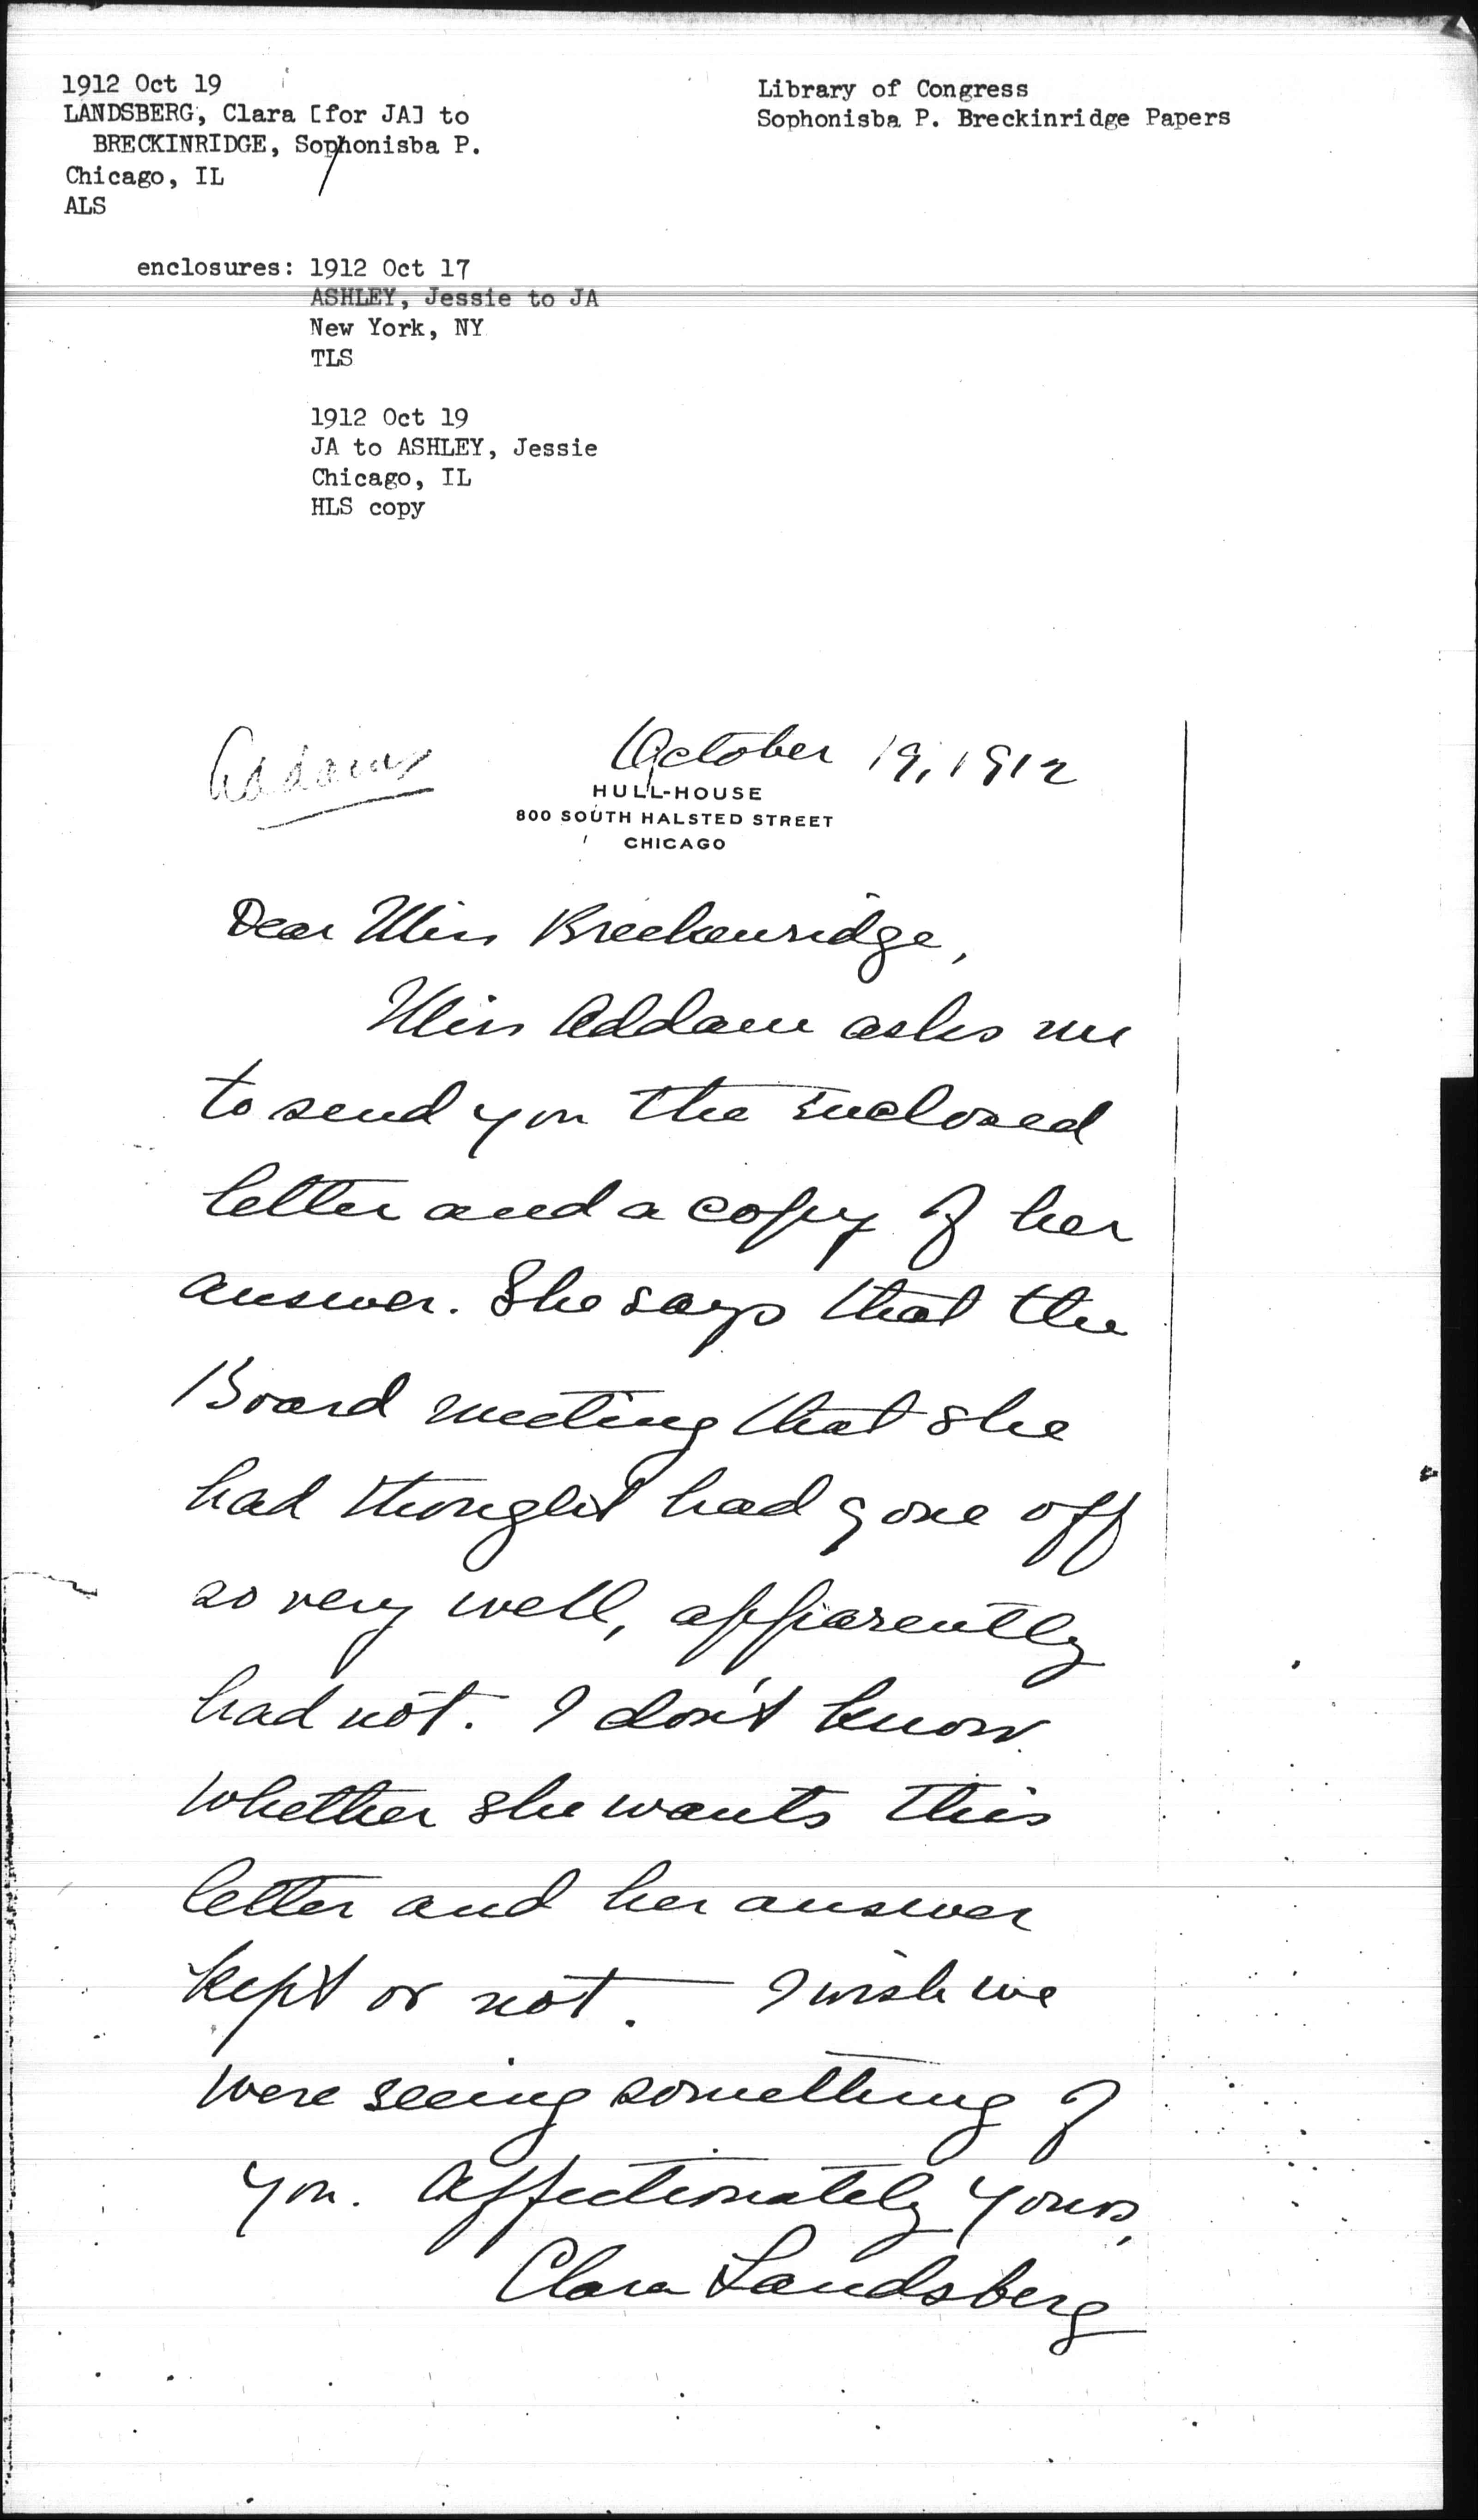 1912 Oct 19
LANDSBERG, Clara [for JA] to
BRECKINRIDGE, Sophonisba P.
Chicago, IL
ALS
Library of Congress
Sophonisba P. Breckinridge Papers
enclosures: 1912 Oct 17
ASHLEY, Jessie to JA
New York, NY
TLS
1912 Oct 19
JA to ASHLEY, Jessie
Chicago, IL
HLS copy
Addams
October 19, 1912
HULL-HOUSE
800 SOUTH HALSTED STREET
CHICAGO
Dear Miss Breckenridge,
Miss Addams asks me
to send you the enclosed
letter and a copy of her
answer. She says that the
Board meeting that she
had thought had gone off
so very well, apparently
had not. I don't know
whether she wants this
letter and her answer
kept or not. — I wish we
were seeing something of
you. Affectionately yours,
Clara Landsberg